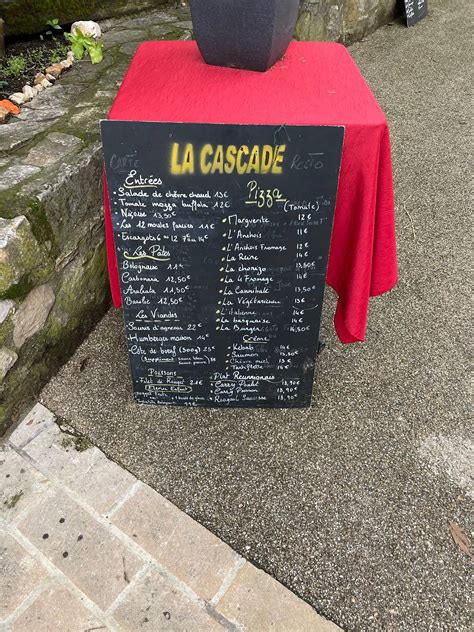 CARTE
LA CASCADE
RESTO
Entrées
Salade de chèvre chaud 13€
Tomate mozza buffala 12€
Niçoise 13€
Les 12 moules farcies 13€
Escargots 6 = 12€
Les Pâtes
Bolognaise 11€
Carbonara 12,50
Basilic 12,50
Les Viandes
Souris d'agneau 22€
Hamburger maison 14€
Côte de bœuf (300g) 25€
Supplément
Poissons
Filet de Rouget 21€
Menu Enfant
Pizza
(Tomate)
Marguerite 12€
L'Anchois 11€
L'Anchois Fromage
La Reine
La chorizo 13,50
La 4 Fromage 14€
La Cannibale
La Végétarienne
L'italienne 14€
La basquaise 14€
La Burger 14,50
Crème
Kebab 14€
Saumon
Chèvre miel
La Tartiflette
Plat Réunionnais
Carry Poulet 18,90
Carry Poisson 18,90
Rougail Saucisse 18,90